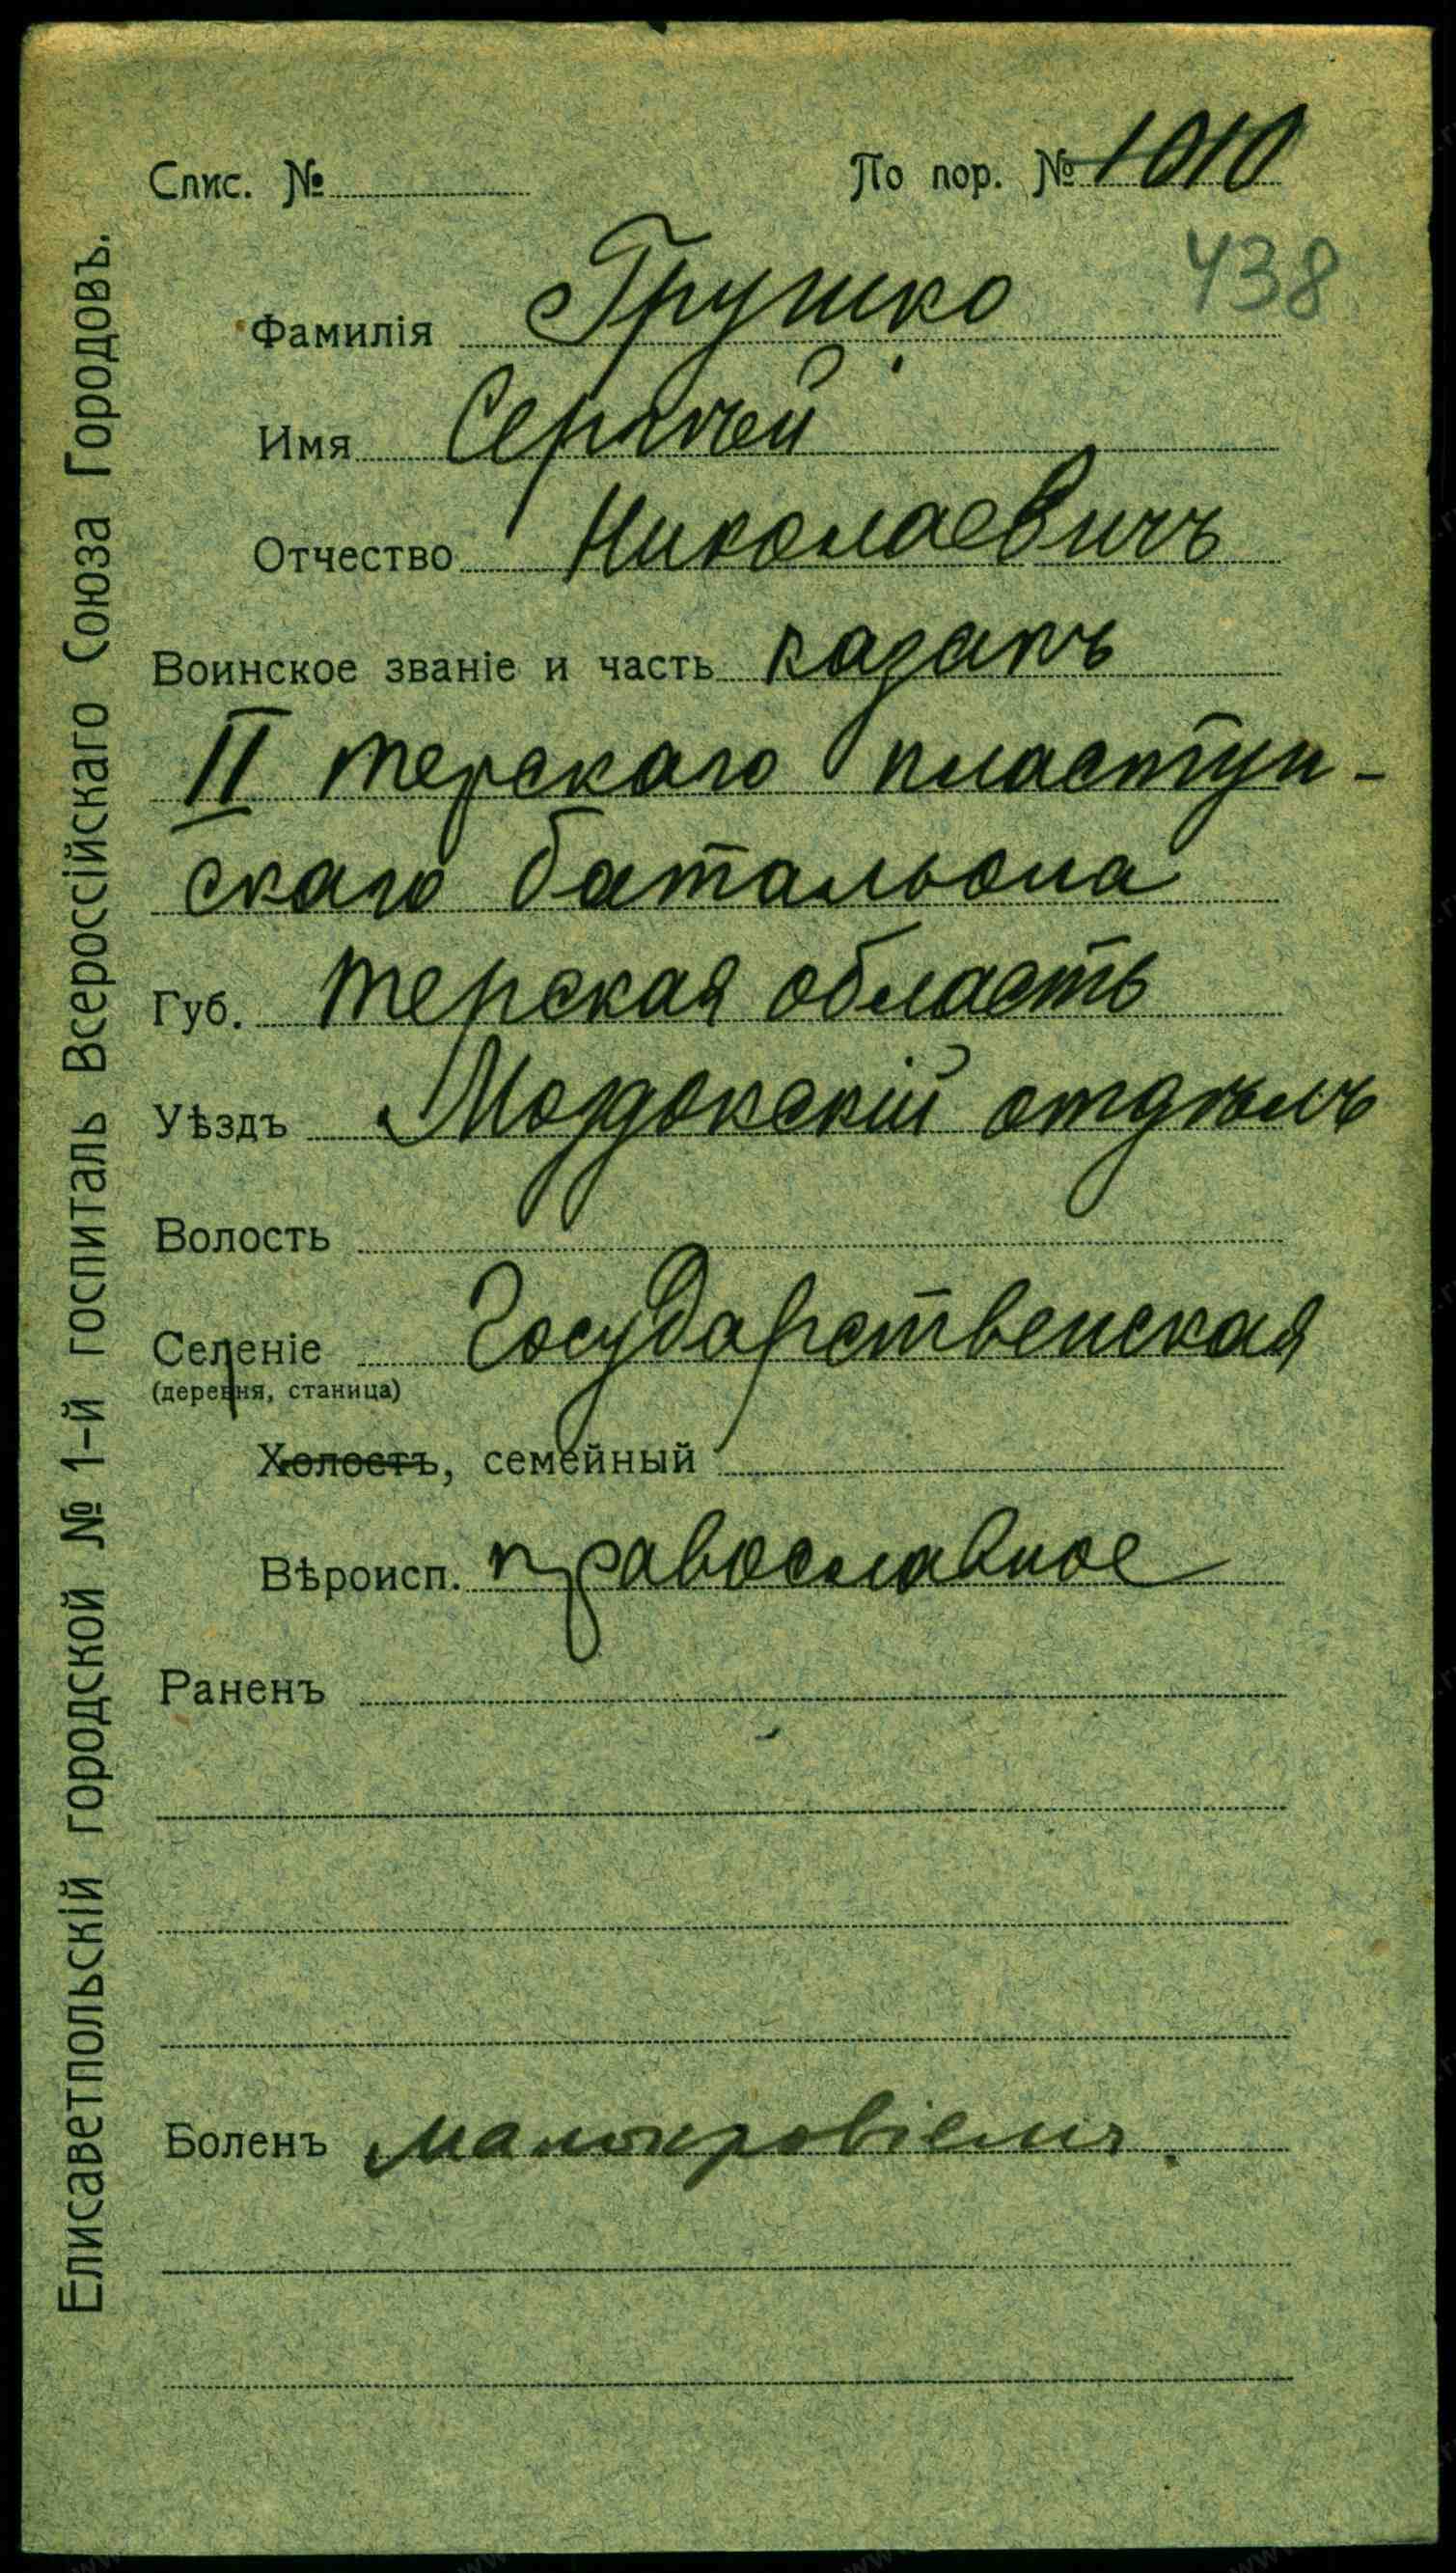 Спис. № По пор. № 1010
438
Фамилія Грушко
Имя Сергѣй
Отчество Николаевичъ
Воинское званіе и часть казакъ
II терскаго пластун-
скаго батальона
Губ. терская область
Уѣздъ Моздокскій отдѣлъ
Волость
Селеніе Государственская
(деревня, станица)
Холостъ, семейный
Вѣроисп. православное
Раненъ
Боленъ малокровіемъ.
Елисаветпольскій городской № 1-й госпиталь Всероссійскаго Союза Городовъ.